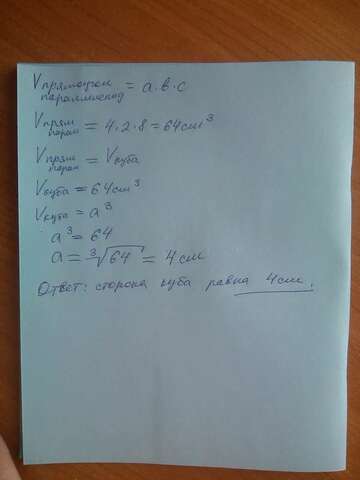 Vпрямоугол
параллелепед = a·b·c
Vпрям
парал = 4·2·8 = 64 см³
Vпрям
парал = Vкуба
Vкуба = 64 см³
Vкуба = a³
a³ = 64
a = ³√64 = 4 см
Ответ: сторона куба равна 4 см.